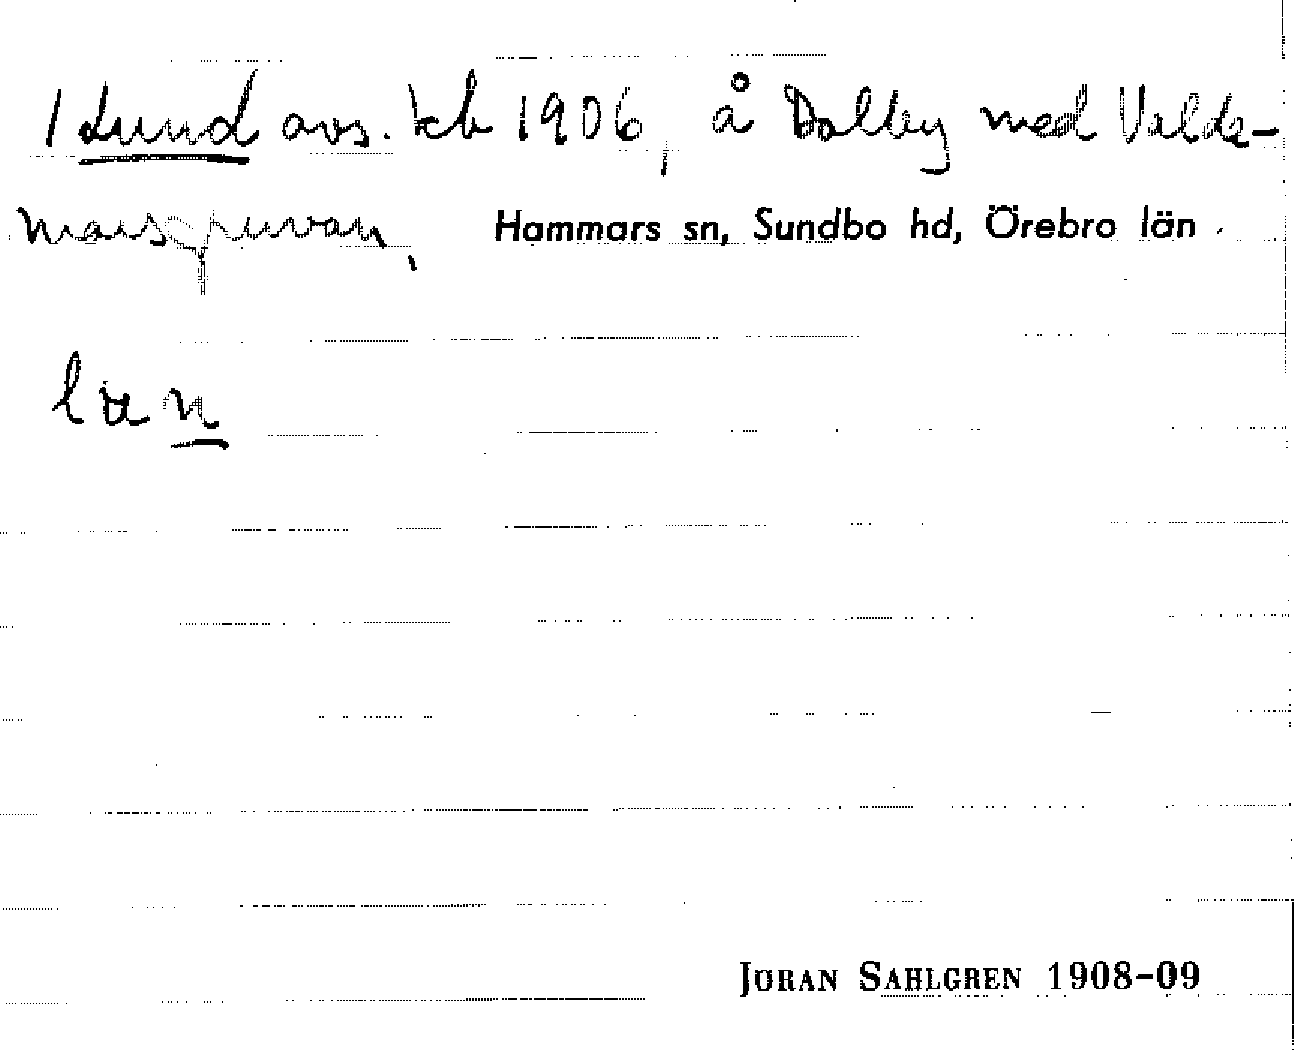 1 Lund avs. kb 1906, å Dalby med Valde-
marsgruvan, Hammars sn, Sundbo hd, Örebro län.
lun
JÖRAN SAHLGREN 1908-09